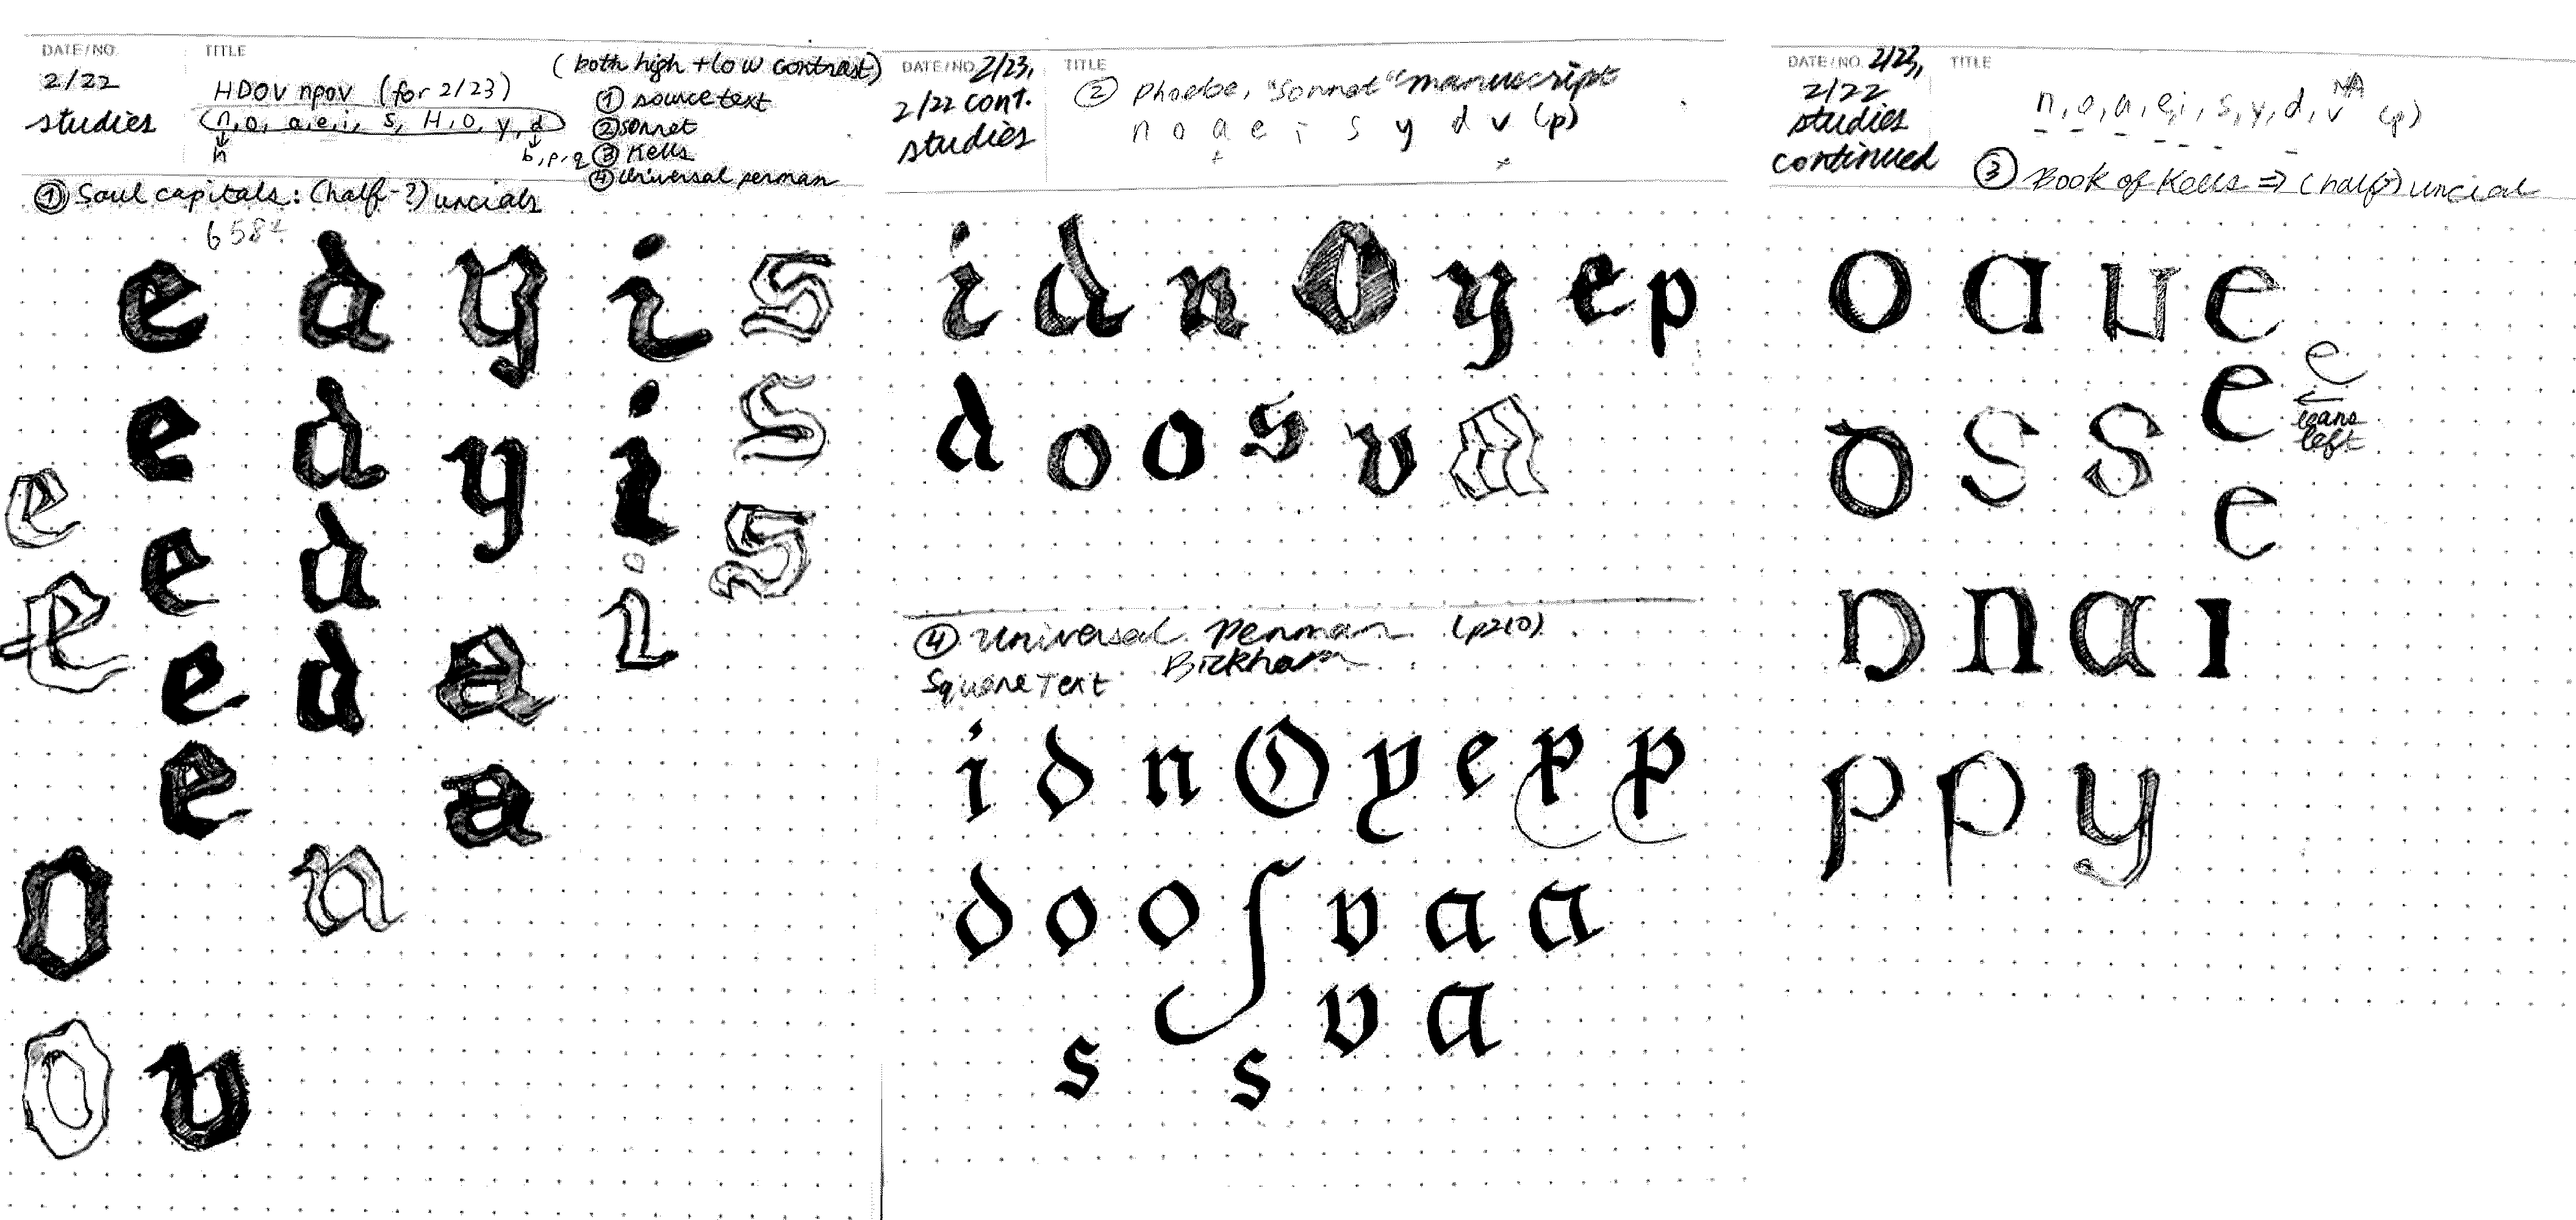 DATE/NO.
2/22
studies
TITLE
HDOV npov (for 2/23)
(n, o, a, e, i, s, H, O, y, d)
h
b, p, q
(both high + low contrast)
① source text
② sonnet
③ Kells
④ Universal penman
① Soul capitals: (half-?) uncials
e d y i s
e d y i s
e
e d i s
e
e d a
e a
O n
O v
DATE/NO. 2/23,
2/22 cont.
studies
TITLE
② Phoebe, "Sonnet" manuscript
n o a e i s y d v (p)
i d n O y e p
d o o s v a
④ Universal Penman (p210)
Bickham
Square Text
i d n O y e p p
d o o ʃ v a a
v a
s s
DATE/NO. 2/23,
2/22
studies
continued
TITLE
n, o, a, e, i, s, y, d, v (p)
NA
③ Book of Kells => (half) uncial
o a u e
e
e
← leans
left
o s s
e
n n a ı
p p y